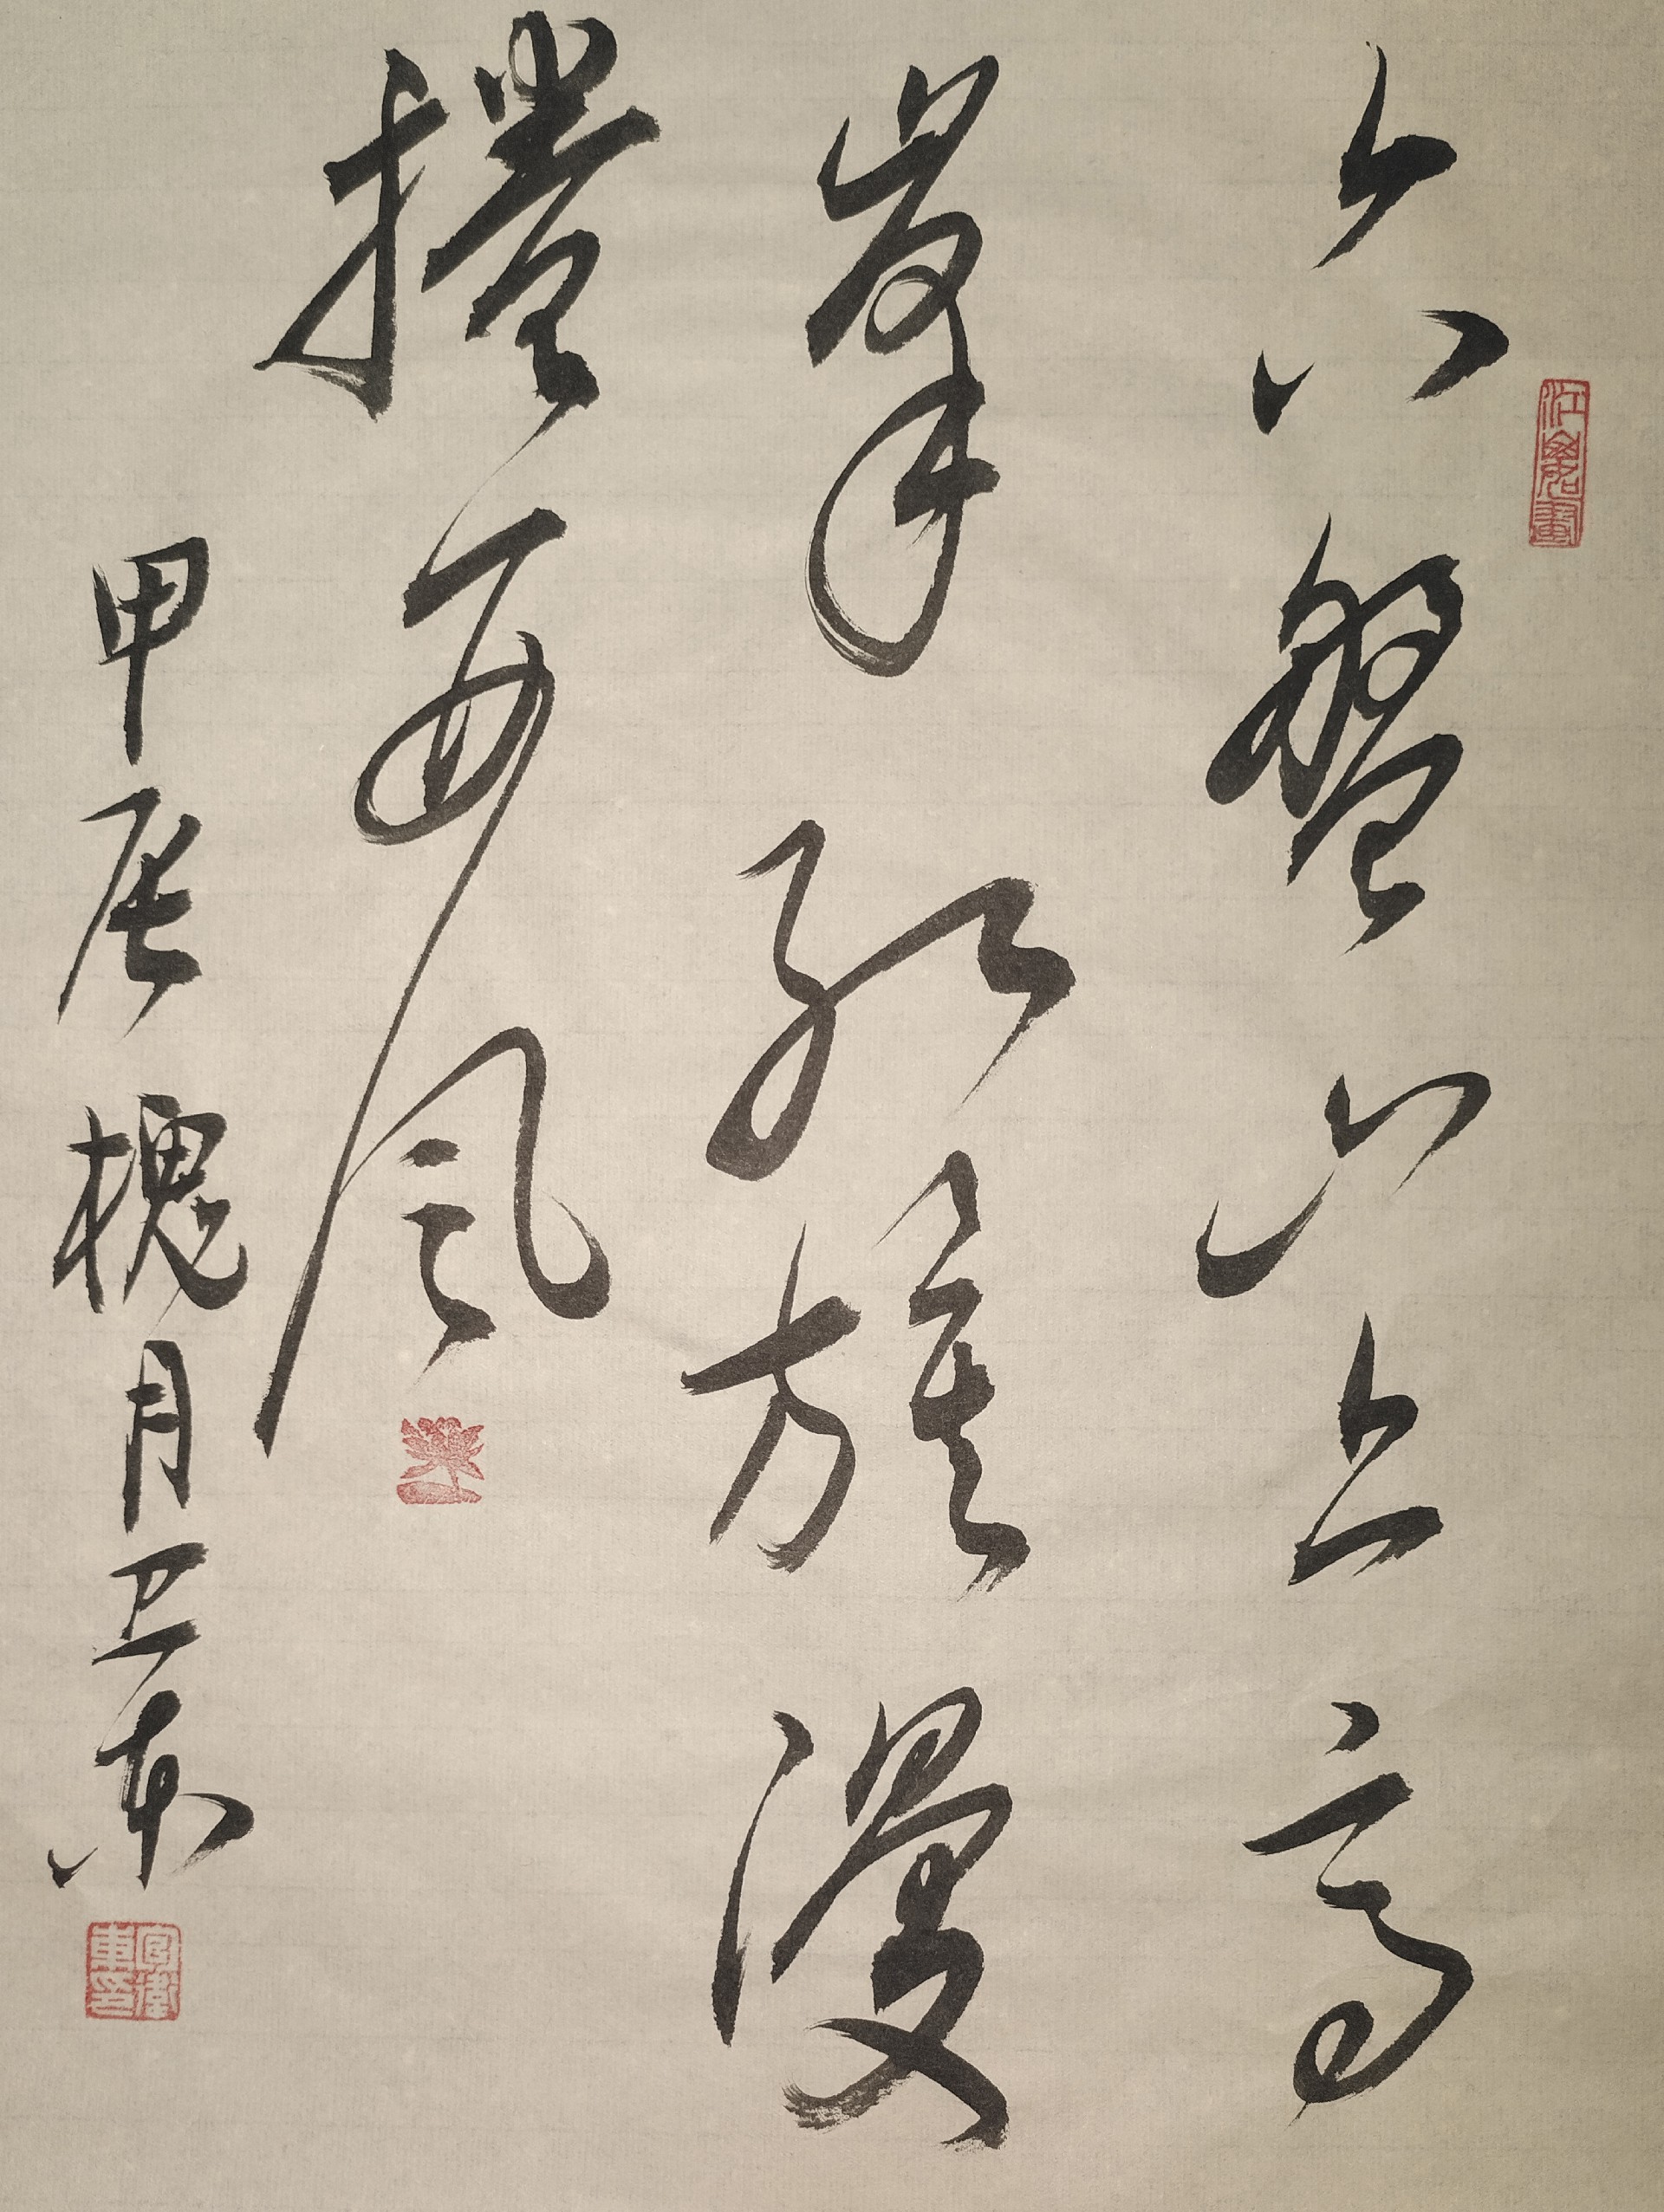 六盘山上高
峰红旗漫
捲西风
甲辰槐月卫东